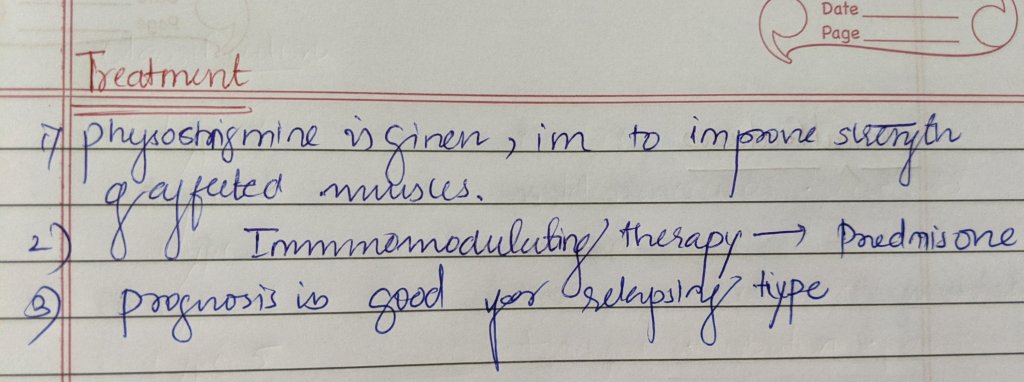 Date
Page
Treatment
1) physostigmine is given, im to improve strength
of affected muscles.
2) Immunomodulating therapy → Prednisone
3) prognosis is good for relapsing type